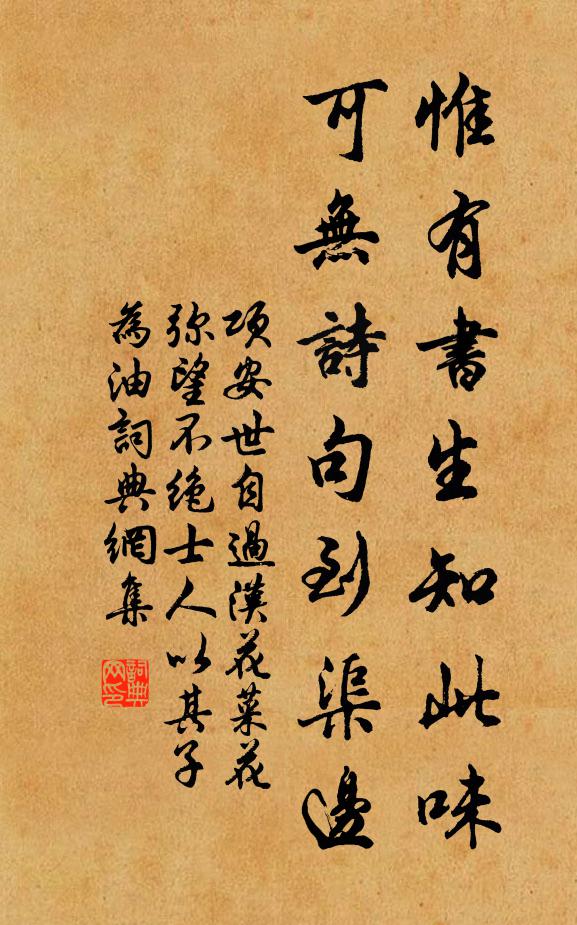 惟有書生知此味
可無詩句到渠邊
項安世自過漢花菜花
弥望不绝士人以其子
為油詞典網集
詞典網印